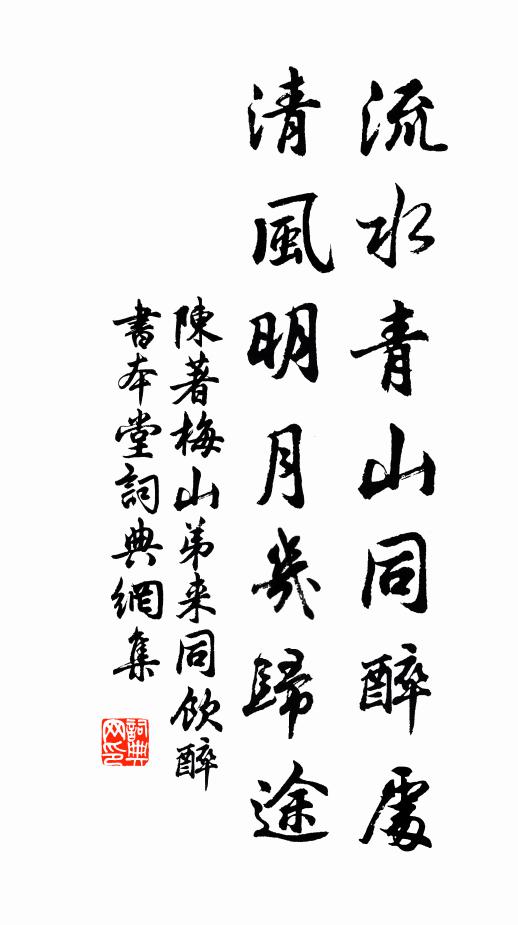 流水青山同醉處
清風明月幾歸途
陳著梅山弟来同飲醉
書本堂詞典網集
詞典網印